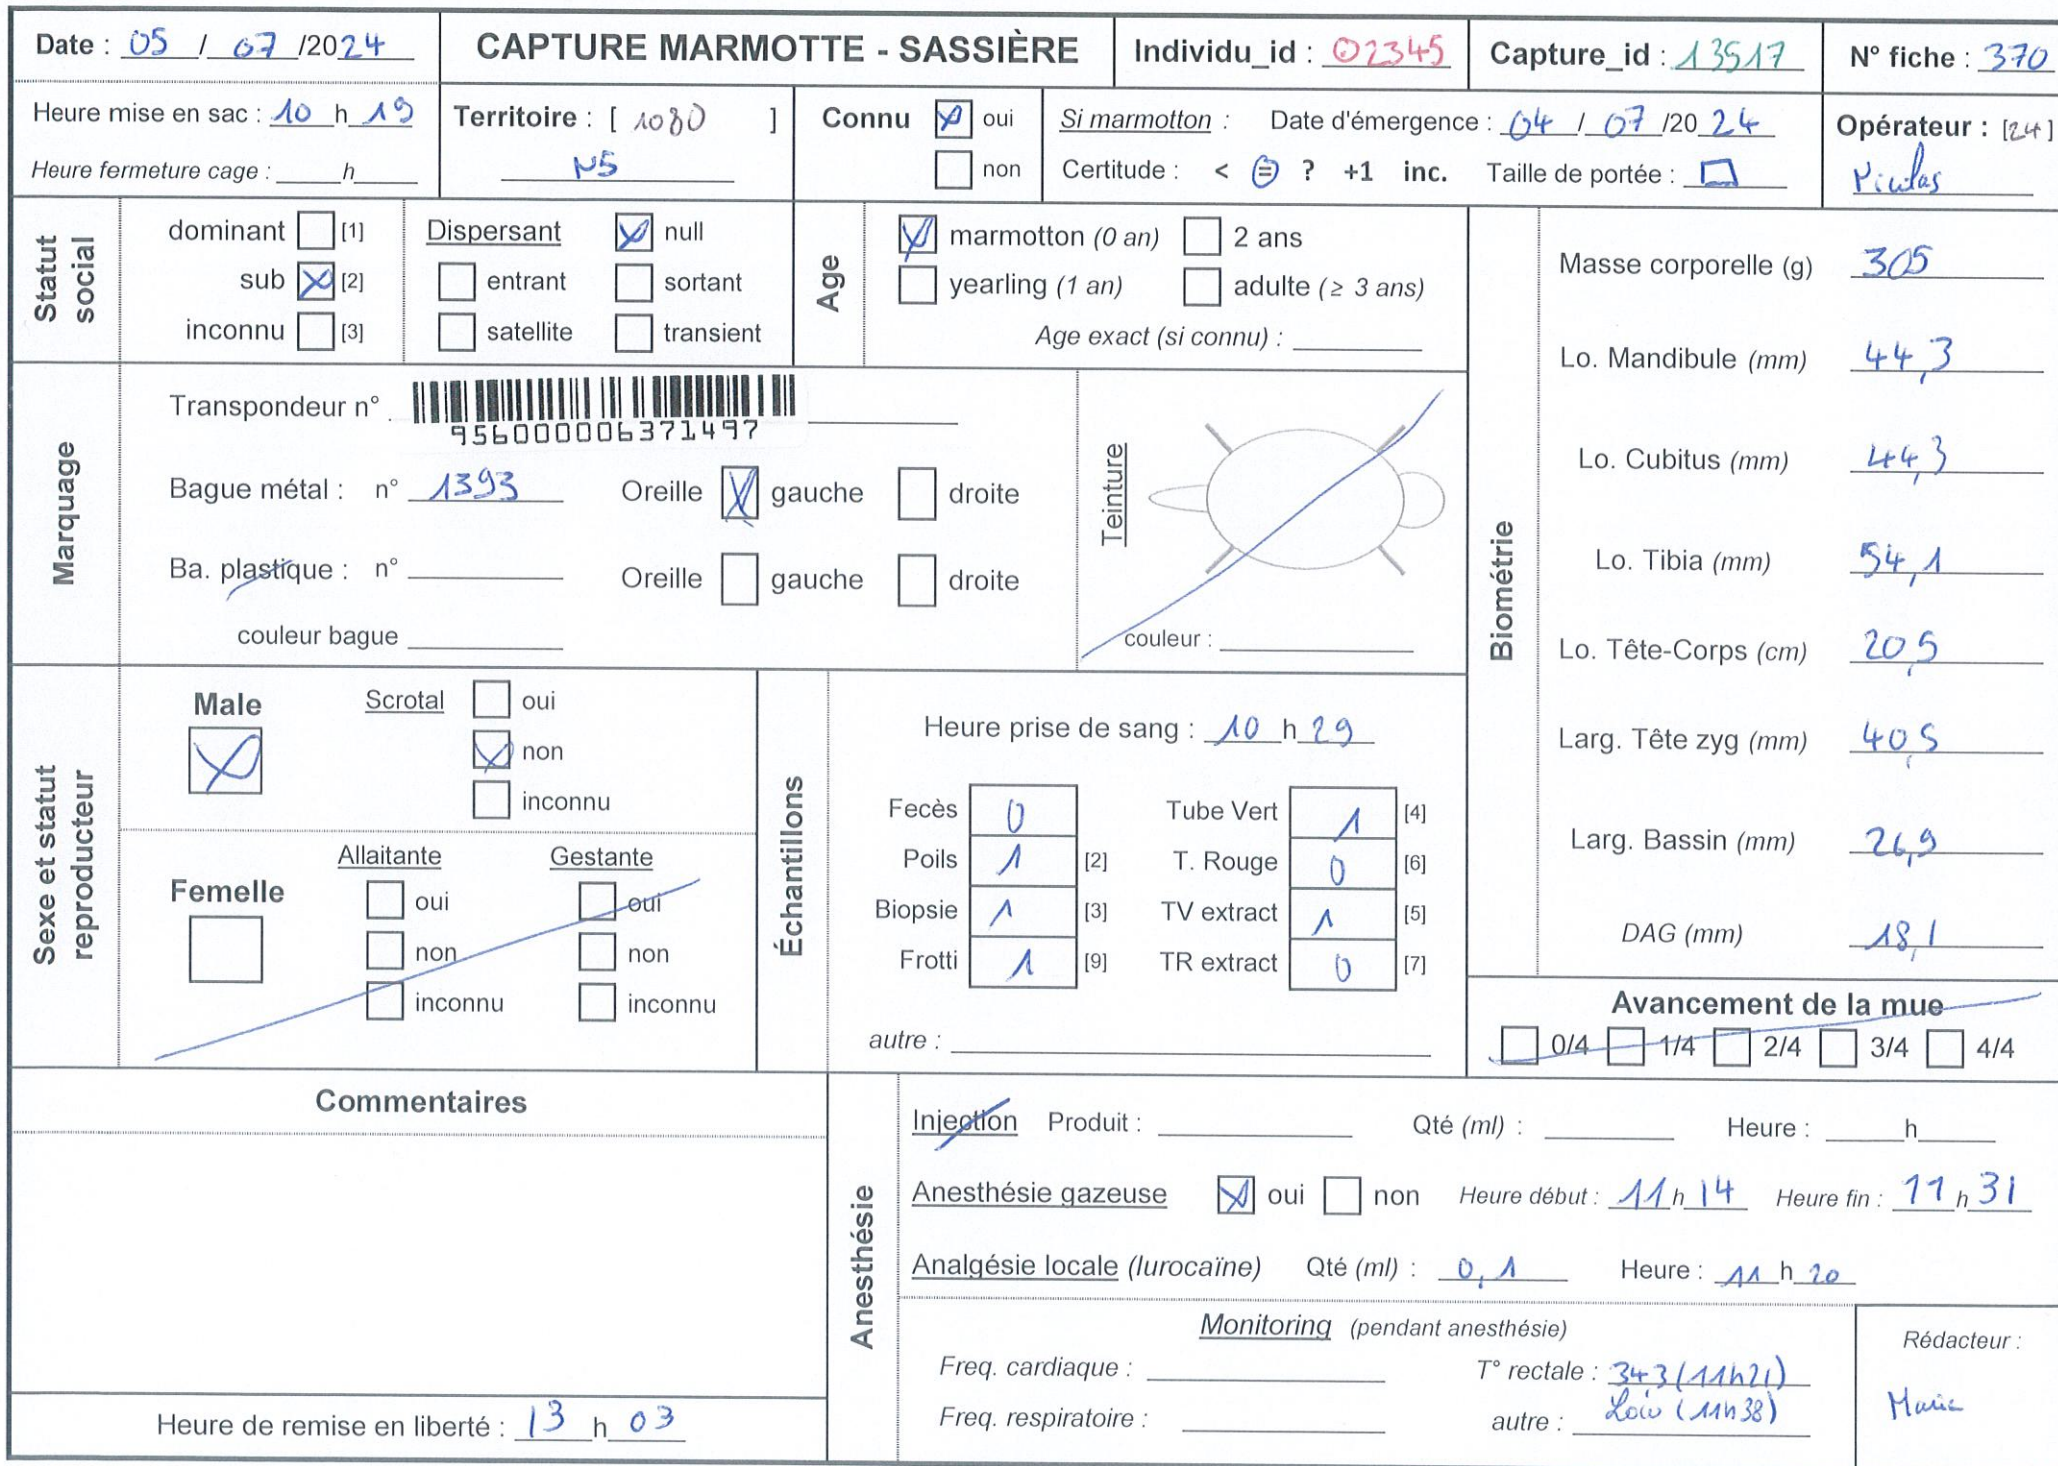 Date : 05 / 07 /2024
CAPTURE MARMOTTE - SASSIÈRE
Individu_id : 02345
Capture_id : 13517
N° fiche : 370
Heure mise en sac : 10 h 19
Heure fermeture cage : ____h____
Territoire : [ 1080 ]
N5
Connu oui
non
Si marmotton : Date d'émergence : 04 / 07 /20 24
Certitude : < = ? +1 inc. Taille de portée :
Opérateur : [24]
Statut social
dominant [1]
sub [2]
inconnu [3]
Dispersant null
entrant sortant
satellite transient
Age
marmotton (0 an) 2 ans
yearling (1 an) adulte (≥ 3 ans)
Age exact (si connu) :
Marquage
Transpondeur n°
956000006371497
Bague métal : n° 1393 Oreille gauche droite
Ba. plastique : n° Oreille gauche droite
couleur bague
Teinture
couleur :
Biométrie
Masse corporelle (g) 305
Lo. Mandibule (mm) 44,3
Lo. Cubitus (mm) 44,3
Lo. Tibia (mm) 54,1
Lo. Tête-Corps (cm) 20,5
Larg. Tête zyg (mm) 40,5
Larg. Bassin (mm) 26,9
DAG (mm) 18,1
Sexe et statut reproducteur
Male
Scrotal oui
non
inconnu
Femelle
Allaitante Gestante
oui oui
non non
inconnu inconnu
Échantillons
Heure prise de sang : 10 h 29
Fecès 0 Tube Vert 1 [4]
Poils 1 [2] T. Rouge 0 [6]
Biopsie 1 [3] TV extract 1 [5]
Frotti 1 [9] TR extract 0 [7]
autre :
Avancement de la mue
0/4 1/4 2/4 3/4 4/4
Commentaires
Heure de remise en liberté : 13 h 03
Anesthésie
Injection Produit : Qté (ml) : Heure : ____h____
Anesthésie gazeuse oui non Heure début : 11 h 14 Heure fin : 11 h 31
Analgésie locale (lurocaïne) Qté (ml) : 0,1 Heure : 11 h 20
Monitoring (pendant anesthésie)
Freq. cardiaque : T° rectale : 343 (11h21)
Freq. respiratoire : autre : (11h38)
Rédacteur :
Marie